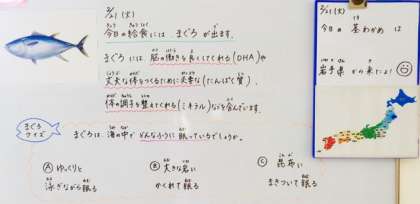 2/21(火)
今日の給食には、まぐろが出ます。
まぐろには、脳の働きを良くしてくれる(DHA)や
丈夫な体をつくるために大事な(たんぱく質)、
体の調子を整えてくれる(ミネラル)なども含んでいます。
まぐろクイズ
まぐろは、海の中で どんなふうに 眠っているでしょうか。
Ⓐ ゆっくりと
泳ぎながら眠る
Ⓑ 大きな岩に
かくれて眠る
Ⓒ 昆布に
まきついて眠る
2/21(火)
今日の 茎わかめ は
岩手県 から来たよ!